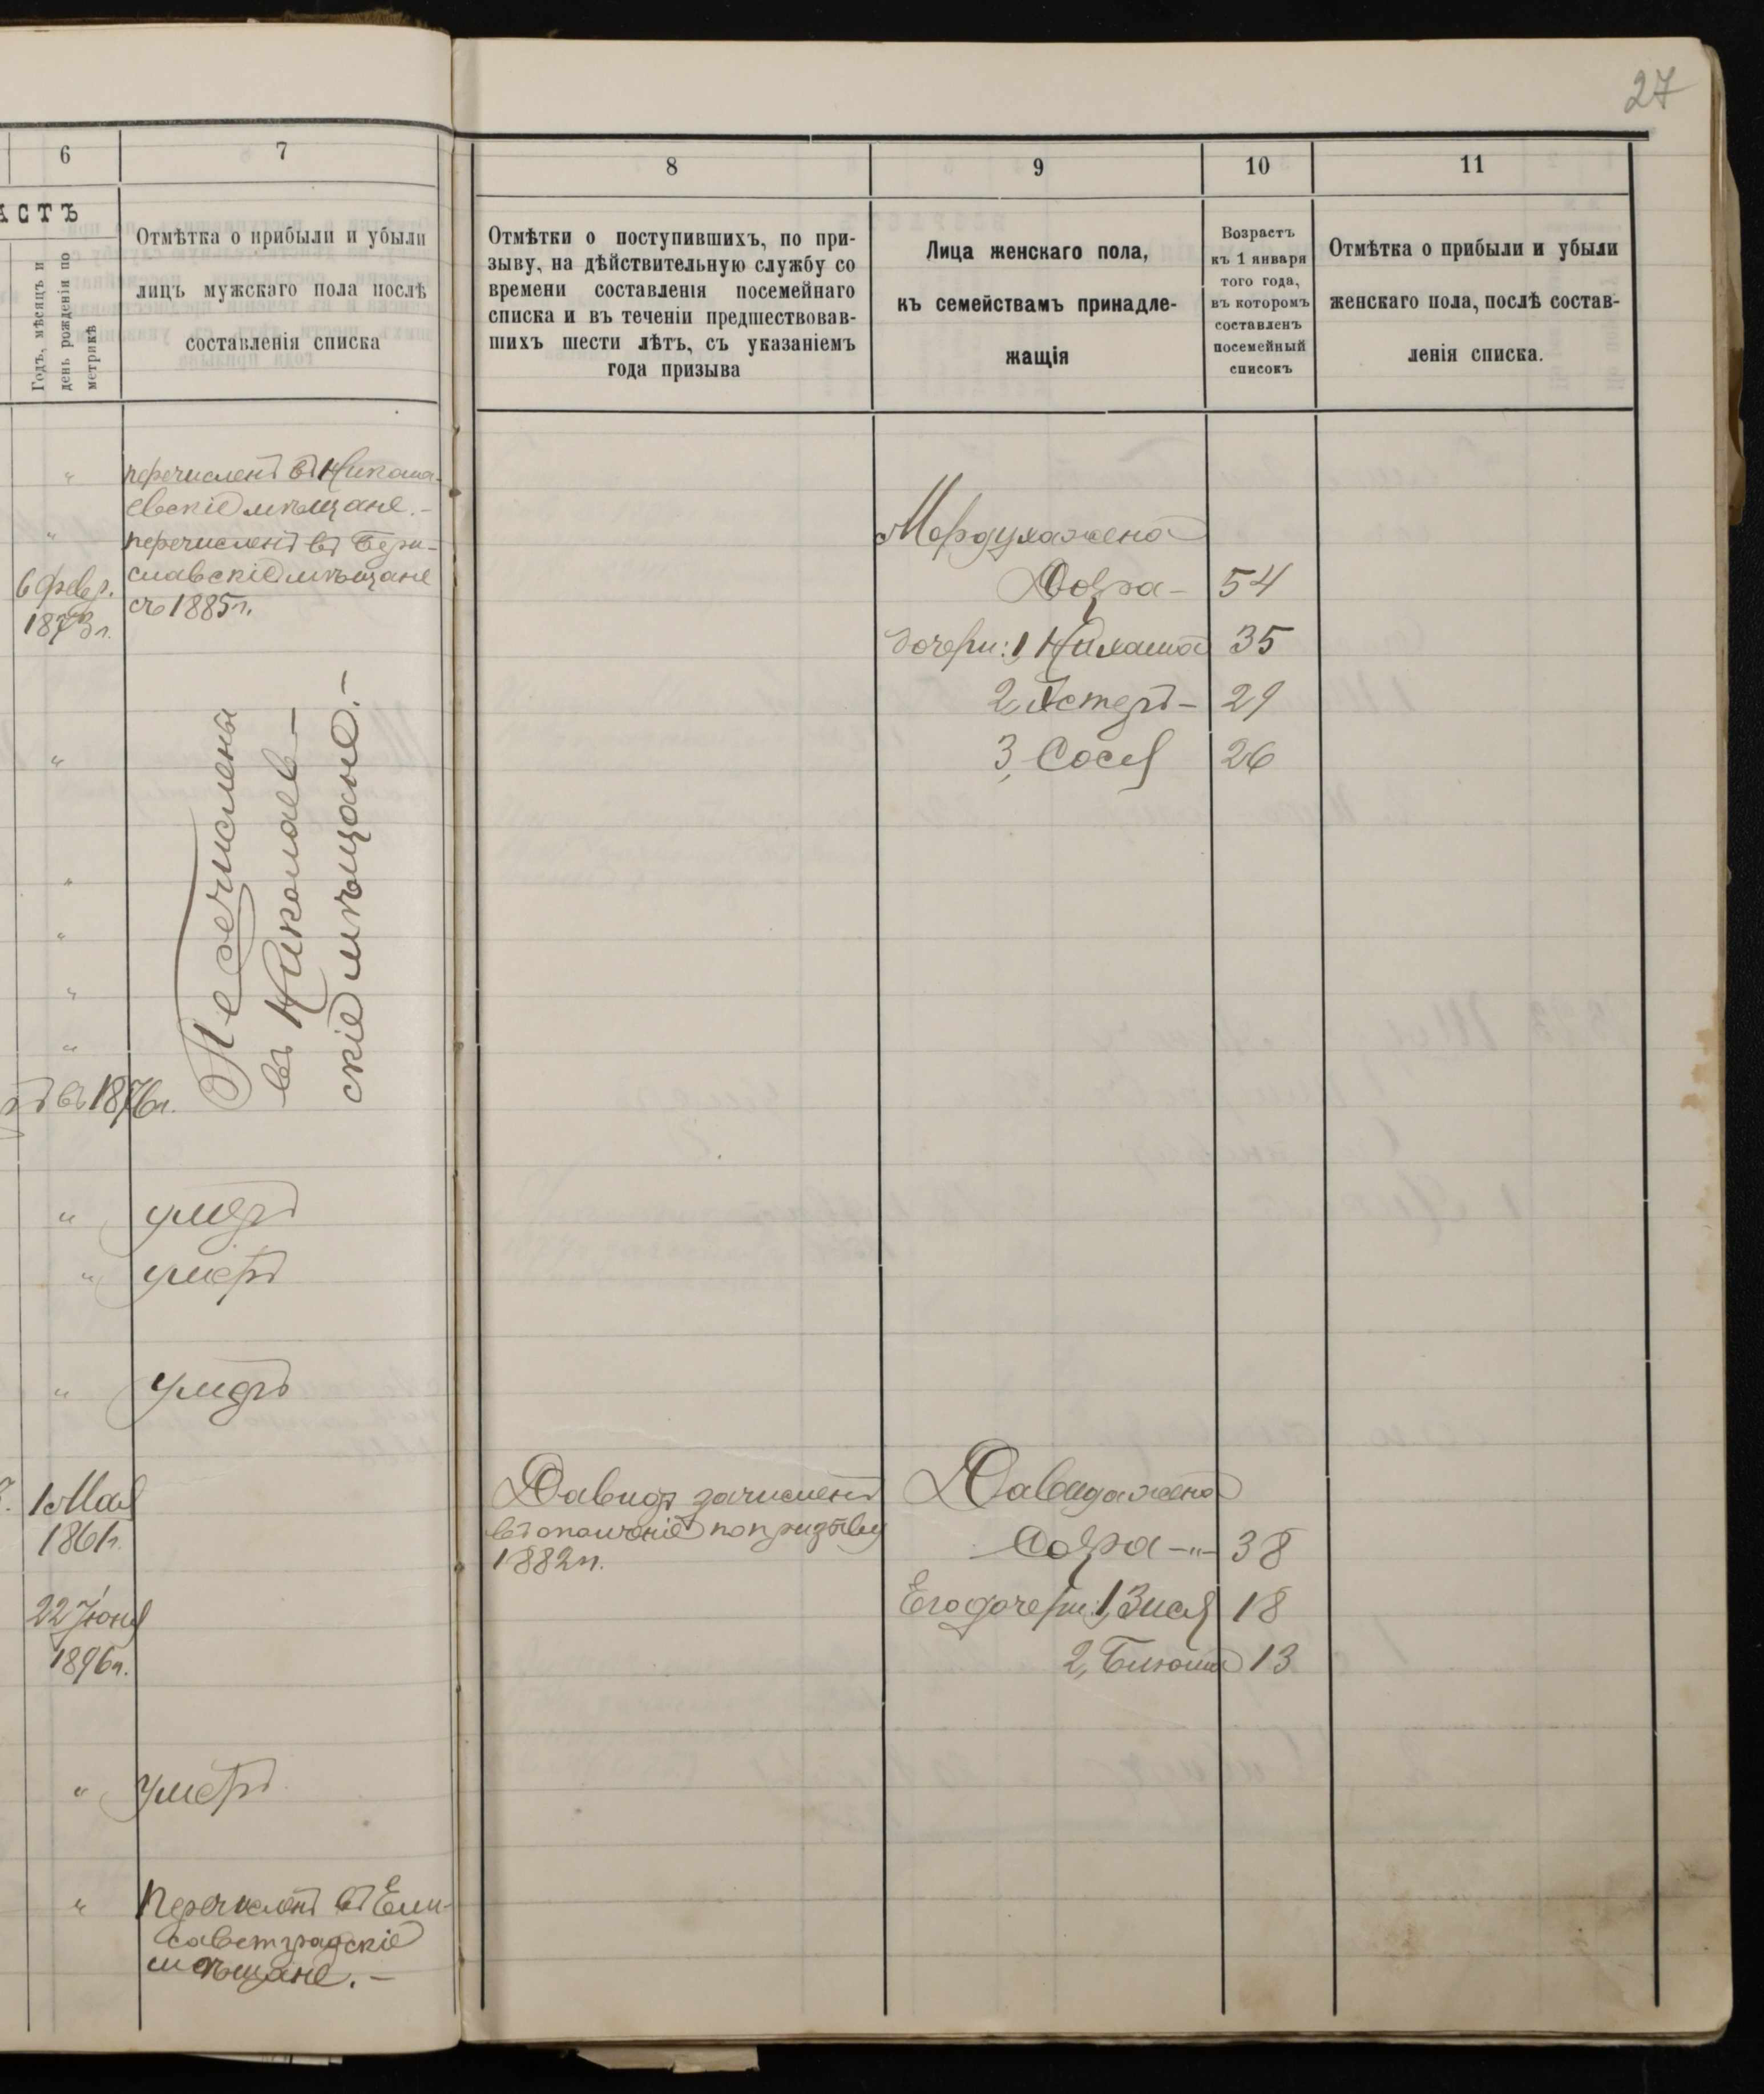 27
6
7
8
9
10
11
АСТЪ
Годъ, мѣсяцъ и
день рожденія по
метрикѣ
Отмѣтка о прибыли и убыли
лицъ мужскаго пола послѣ
составленія списка
Отмѣтки о поступившихъ, по при-
зыву, на дѣйствительную службу со
времени составленія посемейнаго
списка и въ теченіи предшествовав-
шихъ шести лѣтъ, съ указаніемъ
года призыва
Лица женскаго пола,
къ семействамъ принадле-
жащія
Возрастъ
къ 1 января
того года,
въ которомъ
составленъ
посемейный
списокъ
Отмѣтка о прибыли и убыли
женскаго пола, послѣ состав-
ленія списка.
" перечисленъ въ Никола-
евскіе мѣщане.-
" перечисленъ въ Бери-
славскіе мѣщане
съ 1885 г.
6 февр.
1873 г.
Мордуха жена
Добра - 54
дочери: 1, 35
2, Эстеръ - 29
3, Сося 26
"
"
"
"
"
Перечислены
въ Николаев-
скіе мѣщане.-
въ 1876 г.
" умеръ
" умеръ
" умеръ
1 Мая
1861 г.
Давидъ зачисленъ
въ ополченіе по призыву
1882 г.
Давида жена
Сора -"- 38
Его дочери: 1, Зися 18
2, Блюма 13
22 Іюня
1896 г.
" умеръ
" Перечисленъ въ Ели-
саветградскіе
мѣщане.-